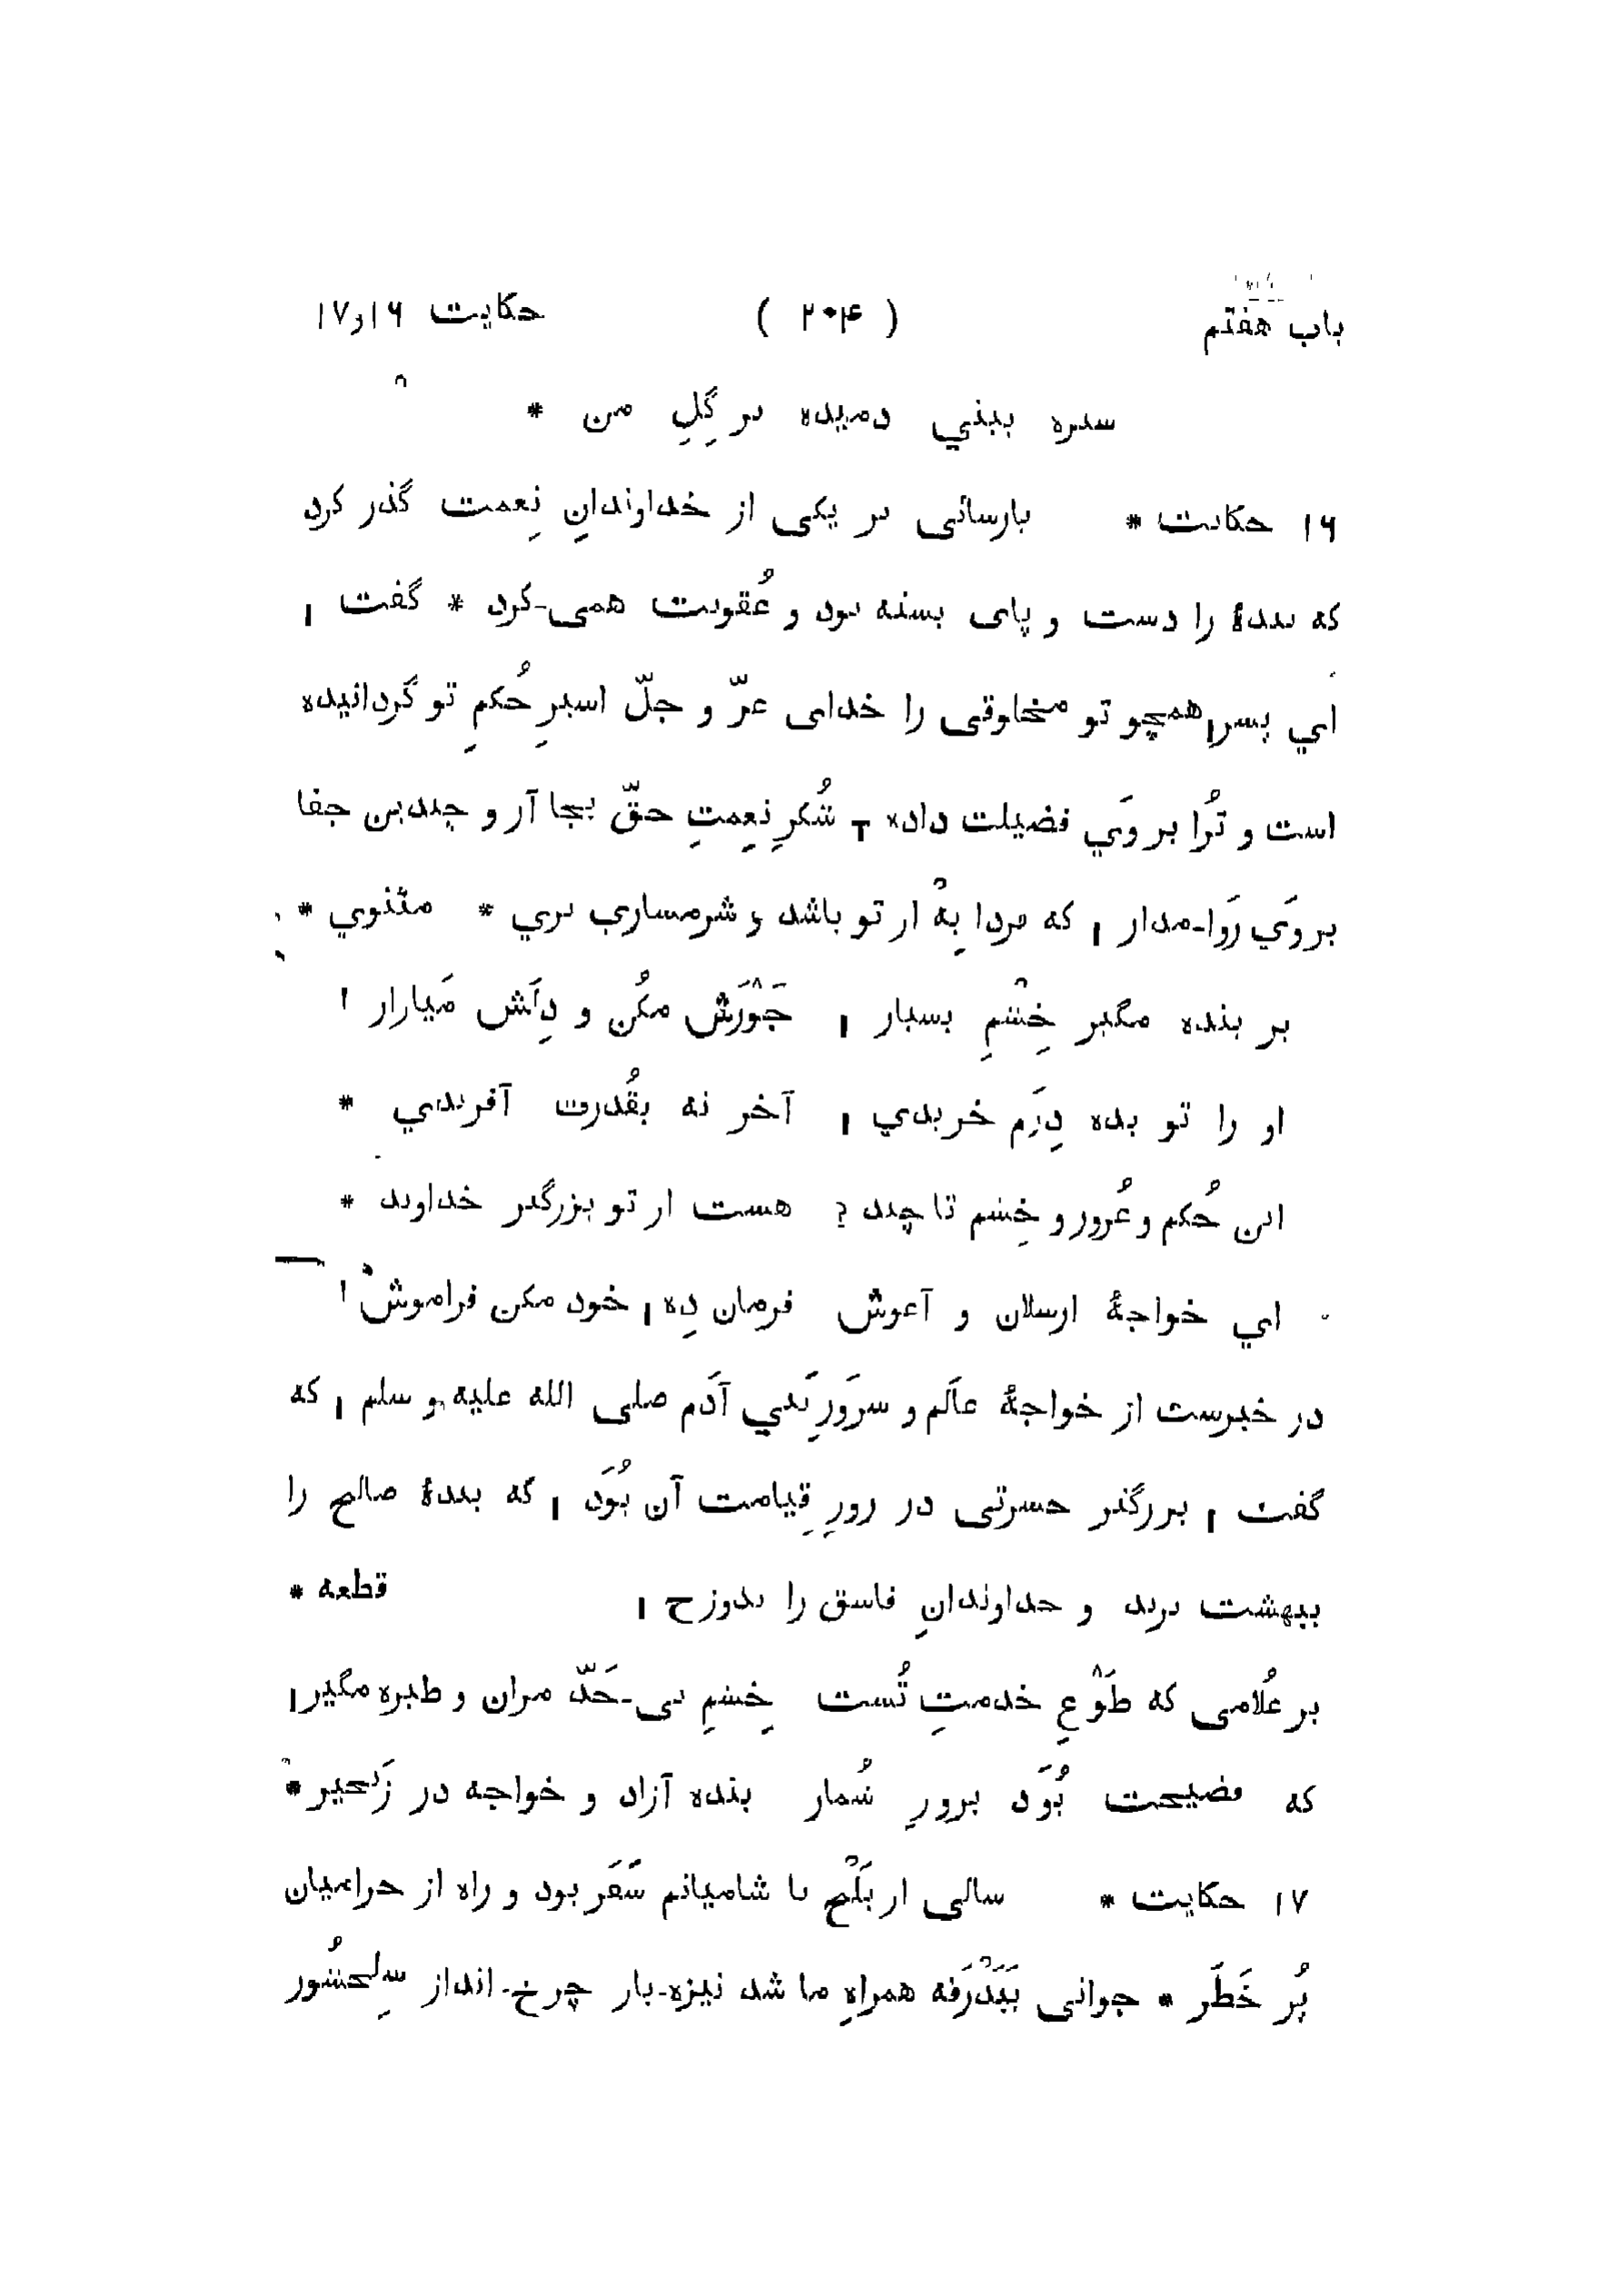 باب هفتم ( ۲۰۴ ) حکایت ۱۶و۱۷
سبزه ببيني دميده بر گِلِ من *
۱۶ حکایت * پارسائی بر یکی از خداوندانِ نِعمت گذر کرد
که بندهٔ را دست و پای بسته بود و عُقوبت همی-کرد * گفت ،
اي پسر، همچو تو مخلوقی را خدای عزّ و جلّ اسیرِ حُکمِ تو گردانیده
است و تُرا بر وَي فضیلت داده - شُکرِ نِعمتِ حقّ بجا آر و چندین جفا
بر وَي رَوا-مدار ، که فردا بِهْ از تو باشد و شرمساري بري * مثنوي *
بر بنده مگیر خِشْمِ بسیار ، جَوْرَش مکُن و دِلَش مَیازار !
او را تو بده دِرَم خریدي ، آخر نه بقُدرت آفریدي *
این حُکم و غُرور و خِشم تا چند ? هست از تو بزرگتر خداوند *
اي خواجهٔ ارسلان و آغوش فرمان دِه ، خود مکن فراموش !
در خبرست از خواجهٔ عالَم و سرَورِ بَني آدَم صلی الله علیه و سلم ، که
گفت ، بزرگتر حسرتی در روزِ قِیامت آن بُوَد ، که بندهٔ صالح را
ببهشت برند و خداوندانِ فاسق را بدوزخ ، قطعه *
بر غُلامی که طَوْعِ خدمتِ تُست خِشمِ بی-حَدّ مران و طیره مگیر ،
که فضیحت بُوَد بروزِ شُمار بنده آزاد و خواجه در زَنجیر *
۱۷ حکایت * سالی از بَلْخ با شامیانم سَفَر بود و راه از حرامیان
پُر خَطَر * جوانی بَبَدْرَقه همراهِ ما شد نیزه-باز چرخ-انداز سِلحشُور